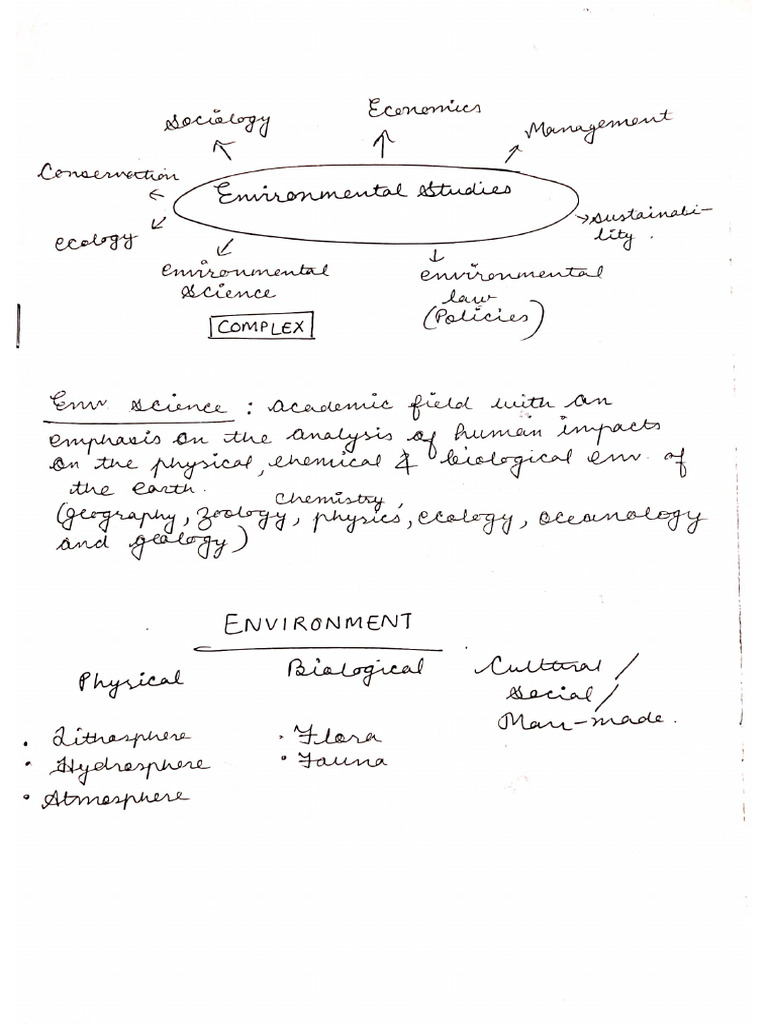 Economics
Sociology
Management
Conservation
Environmental Studies
Sustainabi-
lity.
ecology
environmental
science
environmental
law
(Policies)
COMPLEX
Env science : academic field with an
emphasis on the analysis of human impacts
on the physical, chemical & biological env. of
the earth.
chemistry,
(geography, zoology, physics, ecology, oceanology
and geology)
ENVIRONMENT
Physical Biological Cultural /
Social /
Man-made.
• Lithosphere • Flora
• Hydrosphere • Fauna
• Atmosphere